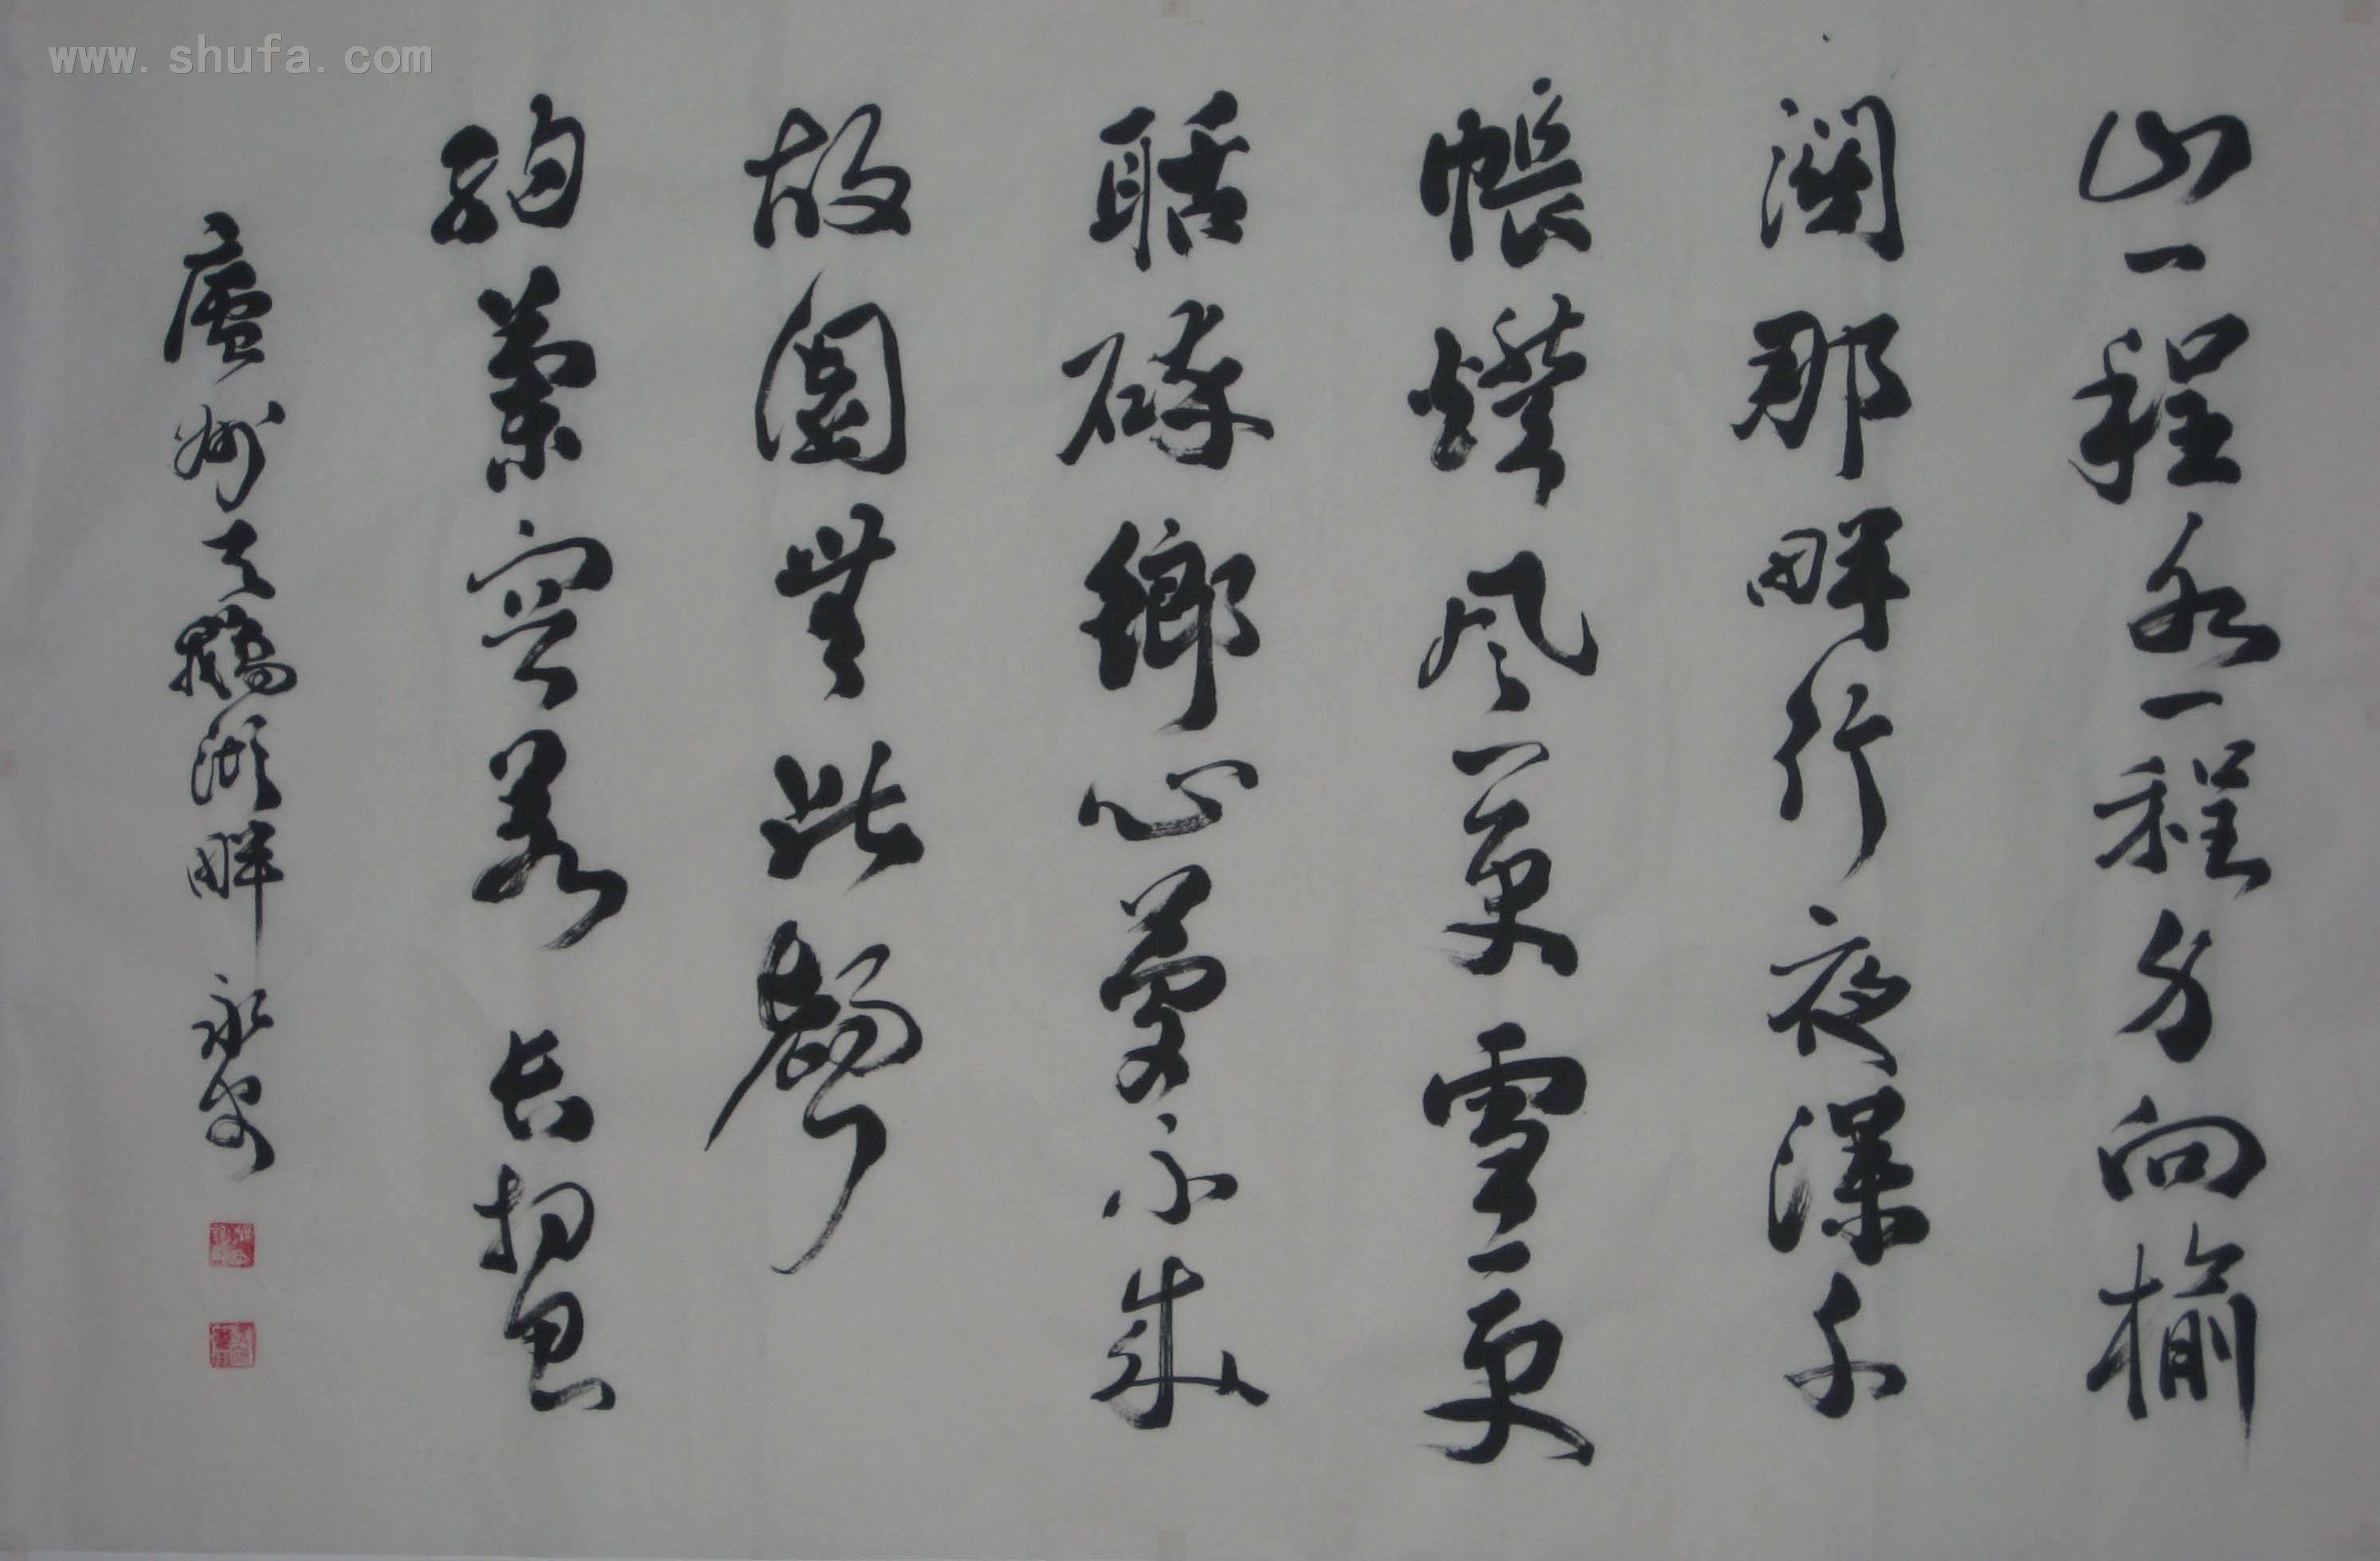 山一程水一程身向榆
關那畔行夜深千
帳燈風一更雪一更
聒碎鄉心夢不成
故園無此聲
納蘭容若長相思
廬州天鵝湖畔永
www.shufa.com